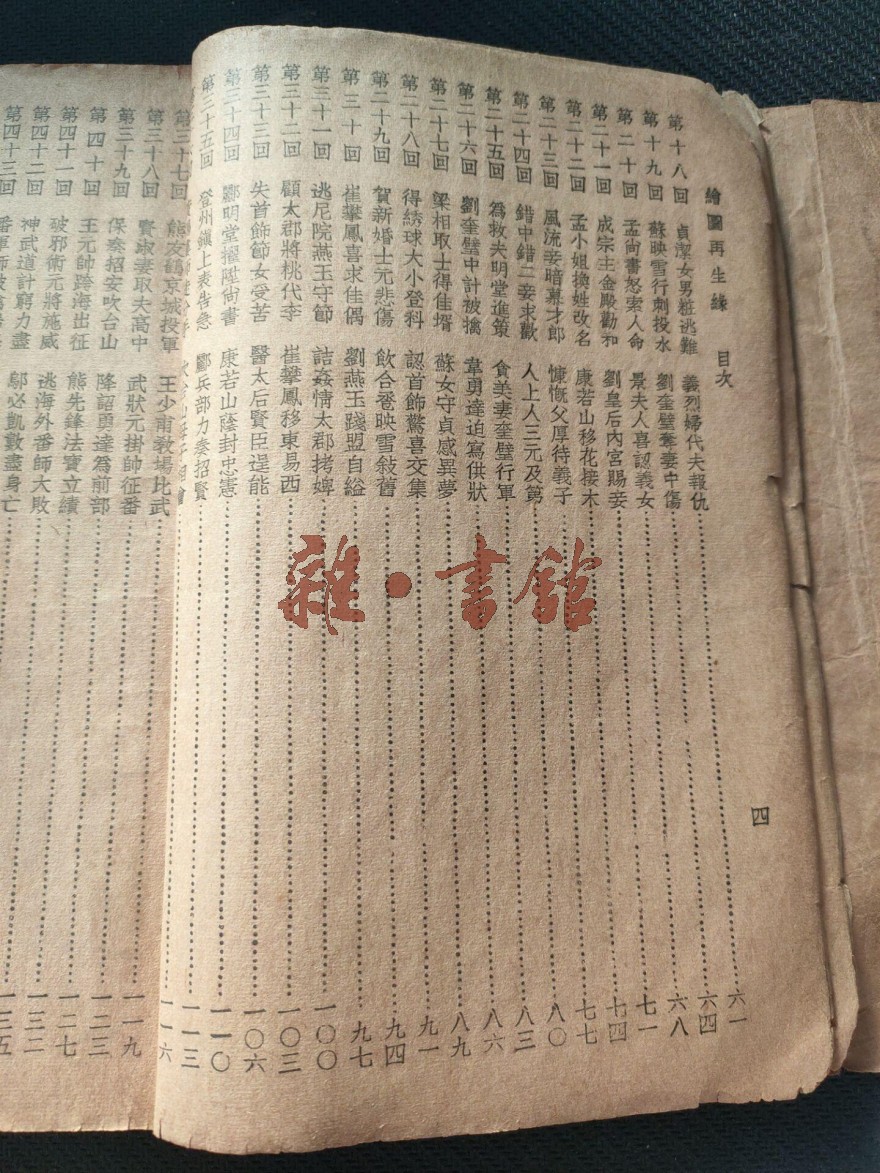 繪圖再生緣 目次
第十八回 貞潔女男粧逃難 義烈婦代夫報仇 六一
第十九回 蘇映雪行刺投水 劉奎璧奪妻中傷 六四
第二十回 孟尚書怒索人命 景夫人喜認義女 六八
第二十一回 成宗主金殿勸和 劉皇后內宮賜妾 七一
第二十二回 孟小姐換姓改名 康若山移花接木 七四
第二十三回 風流妾暗慕才郎 慷慨父厚待義子 七七
第二十四回 錯中錯二妾求歡 人上人三元及第 八〇
第二十五回 為救夫明堂進策 貪美妻奎璧行軍 八三
第二十六回 劉奎璧中計被擒 韋勇達迫寫供狀 八六
第二十七回 梁相取士得佳壻 蘇女守貞感異夢 八九
第二十八回 得綉球大小登科 認首飾驚喜交集 九一
第二十九回 賀新婚士元悲傷 飲合卺映雪敍舊 九四
第三十回 崔攀鳳喜求佳偶 劉燕玉踐盟自縊 九七
第三十一回 逃尼院燕玉守節 詰姦情太郡拷婢 一〇〇
第三十二回 顧太郡將桃代李 崔攀鳳移東易西 一〇三
第三十三回 失首飾節女受苦 醫太后賢臣逞能 一〇六
第三十四回 酈明堂擢陞尚書 康若山蔭封忠憲 一一〇
第三十五回 登州鎮上表告急 酈兵部力奏招賢 一一三
一一六
第三十七回 熊友鶴京城投軍 王少甫教場比武
第三十八回 賢淑妻取夫高中 武狀元掛帥征番 一一九
第三十九回 保奏招安吹台山 降詔勇達為前部 一二三
第四十回 王元帥跨海出征 熊先鋒法寶立績 一二七
第四十一回 破邪術元將施威 逃海外番師大敗 一三二
第四十二回 神武道計窮力盡 鄔必凱數盡身亡 一三五
第四十三回
四
雜·書館